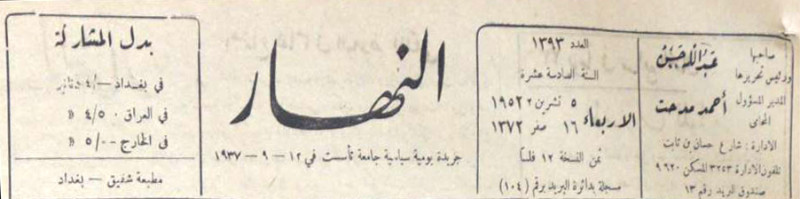 صاحبها
ورئيس تحريرها
عبدالله حسن
المدير المسؤول
المحامي
أحمد مدحت
الادارة : شارع حسان بن ثابت
تلفون الادارة ٣٢٥٣ المسكن ٩٦٢٠
صندوق البريد رقم ١٣
العدد ١٣٩٣
السنة السادسة عشرة
الاربعاء
٥ تشرين ٢ ١٩٥٢
١٦ صفر ١٣٧٢
ثمن النسخة ١٢ فلساً
مسجلة بدائرة البريد برقم (١٠٤)
النهار
جريدة يومية سياسية جامعة تأسست في ١٢ – ٩ – ١٩٣٧
بدل المشاركة
في بغداد —/٤ دنانير
في العراق ٤/٥٠٠
في الخارج ٥/٠٠٠
مطبعة شفيق – بغداد